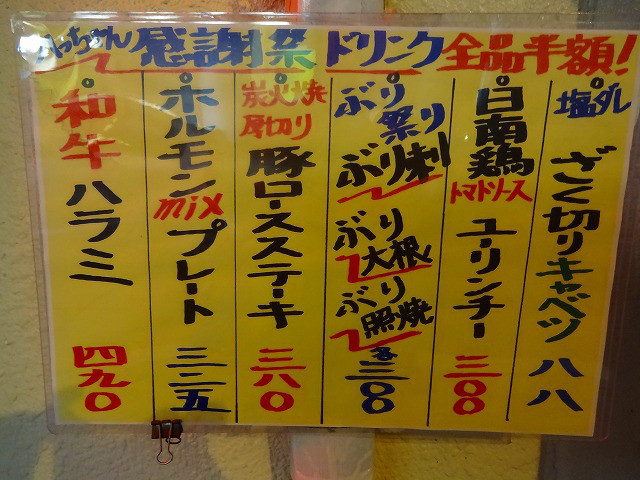 っちゃん 感謝祭 ドリンク 全品半額!
塩ダレ
ざく切りキャベツ 八八
日南鶏
トマトソース
ユーリンチー 三〇〇
ぶり祭り
ぶり刺
ぶり大根
ぶり照焼
各三〇〇
炭火焼
厚切り
豚ロースステーキ 三八〇
ホルモンmixプレート 三二五
和牛ハラミ 四九〇